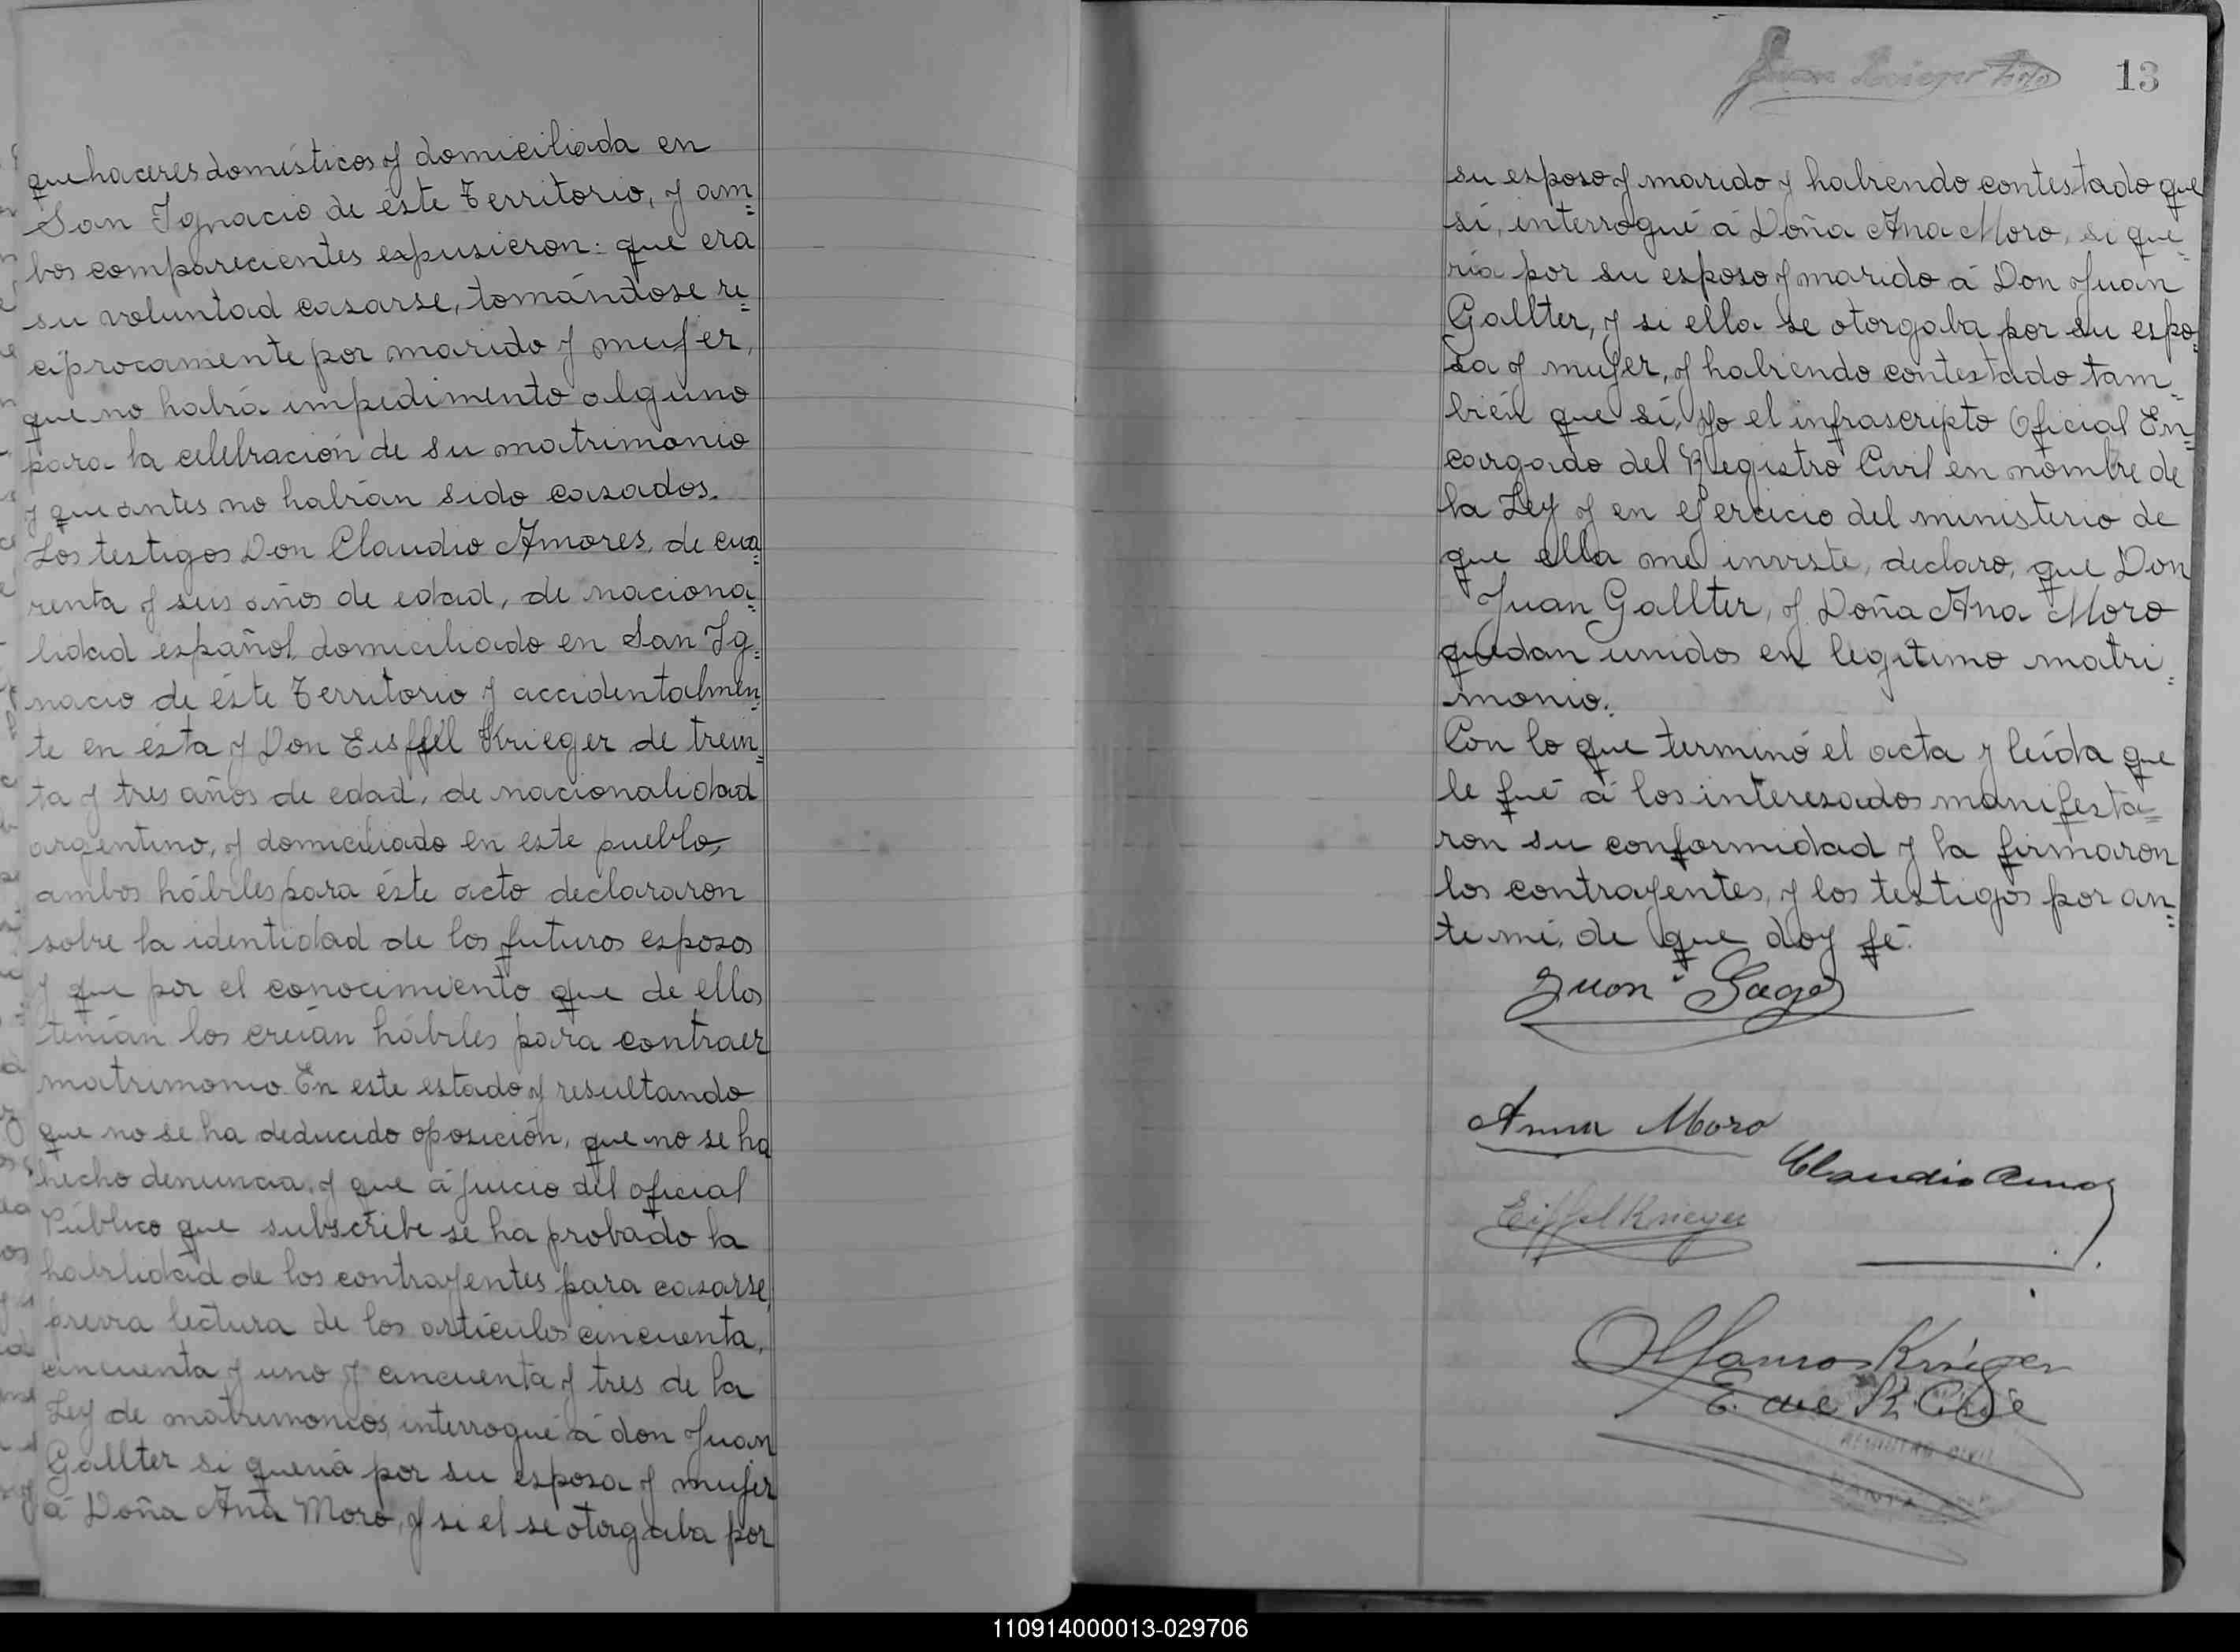 quehaceres domésticos y domiciliada en
San Ignacio de este Territorio, y am=
bos comparecientes expusieron: que era
su voluntad casarse, tomándose re=
ciprocamente por marido y mujer,
que no había impedimento alguno
para la celebración de su matrimonio
y que antes no habían sido casados.
Los testigos Don Claudio Amores, de cua=
renta y seis años de edad, de naciona=
lidad español, domiciliado en San Ig=
nacio de éste Territorio y accidentalmen=
te en ésta y Don Eisffel Krieger de trein=
ta y tres años de edad, de nacionalidad
argentino, y domiciliado en este pueblo,
ambos hábiles para éste acto declararon
sobre la identidad de los futuros esposos
y que por el conocimiento que de ellos
tenían los creían hábiles para contraer
matrimonio. En este estado y resultando
que no se ha deducido oposición, que no se ha
hecho denuncia, y que á juicio del oficial
Público que subscribe se ha probado la
habilidad de los contrayentes para casarse,
previa lectura de los artículos cincuenta,
cincuenta y uno y cincuenta y tres de la
Ley de matrimonios, interrogué á don Juan
Gallter si quería por su esposa y mujer
á Doña Ana Moro, y si el se otorgaba por
13
su esposo y marido y habiendo contestado que
sí, interrogué á Doña Ana Moro, si que=
ría por su esposo y marido á Don Juan
Gallter, y si ella se otorgaba por su espo=
sa y mujer, y habiendo contestado tam=
bién que sí, yo el infrascripto Oficial En=
cargado del Registro Civil en nombre de
la Ley y en ejercicio del ministerio de
que ella me inviste, declaro, que Don
Juan Gallter, y Doña Ana Moro
quedan unidos en legítimo matri=
monio.
Con lo que terminó el acta y leída que
le fué á los interesados manifesta=
ron su conformidad y la firmaron
los contrayentes, y los testigos por an=
te mí, de que doy fé.
Anna Moro
Claudio
Eiffel Krieger
Krieger
REGISTRO CIVIL
110914000013-029706